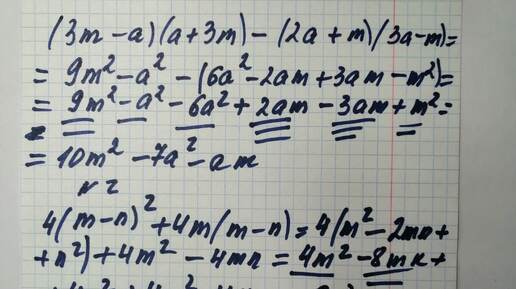 (3m - a)(a + 3m) - (2a + m)(3a - m) =
= 9m² - a² - (6a² - 2am + 3am - m²) =
= 9m² - a² - 6a² + 2am - 3am + m² =
= 10m² - 7a² - am
№ 2
4(m - n)² + 4m(m - n) = 4(m² - 2mn +
+ n²) + 4m² - 4mn = 4m² - 8mn +